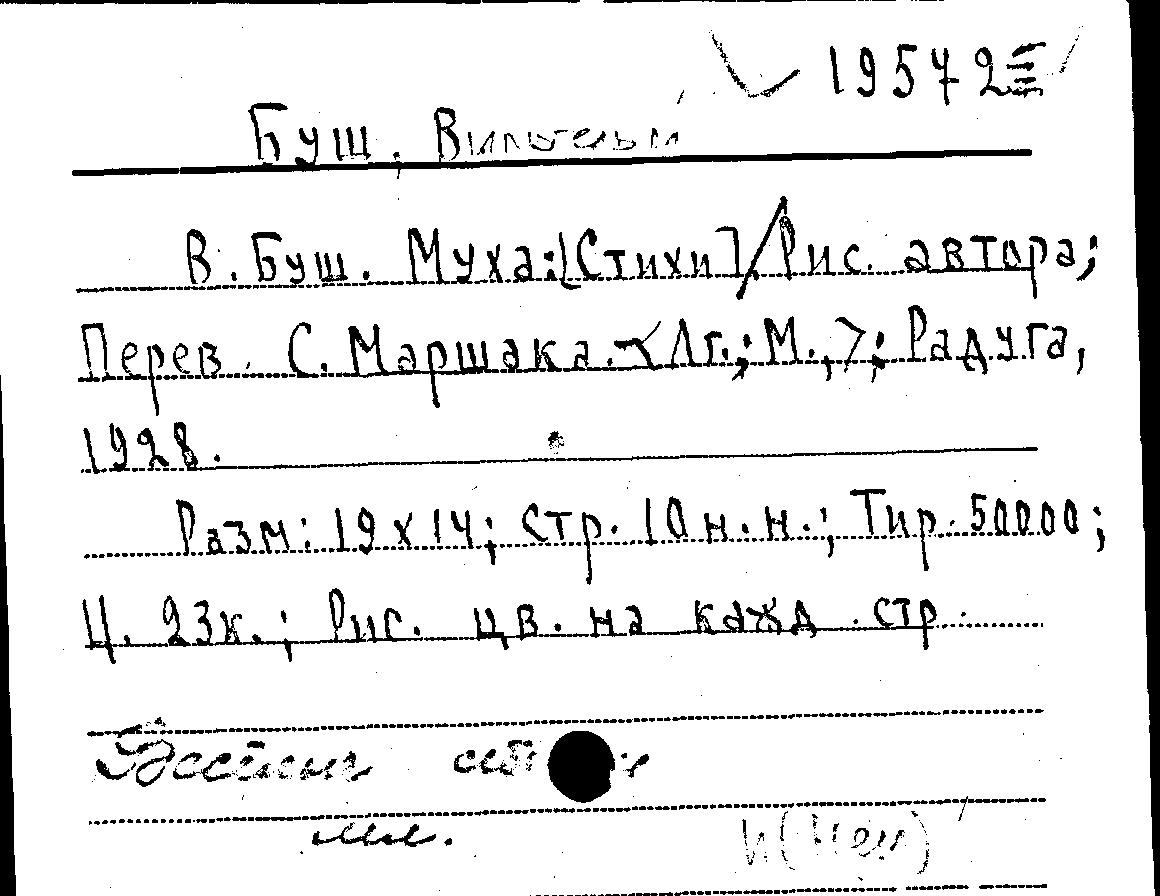 195729
Буш, Вильгельм
В. Буш. Муха: [Стихи] / Рис. автора;
Перев. С. Маршака. < Лг.; М., >; Радуга,
1928.
Разм: 19 х 14; Стр. 10 н. н.; Тир. 50000;
Ц. 23к.; Рис. цв. на кажд. стр.
мл. И (Нем)